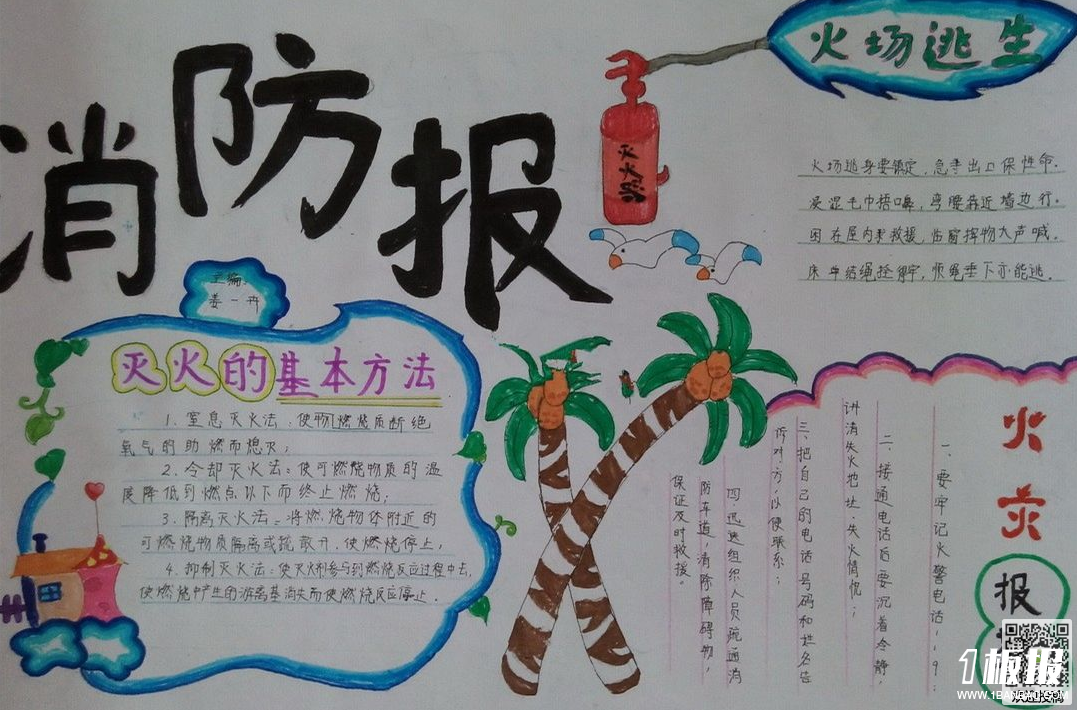 消防报
主编:
姜一卉
灭火器
火场逃生
火场逃身要镇定,急寻出口保性命.
浸湿毛巾捂口鼻,弯腰靠近墙边行.
困在屋内求救援,临窗挥物大声喊.
床单结绳拴牢,顺绳垂下亦能逃.
灭火的基本方法
1.窒息灭火法:使物燃烧质断绝
氧气的助燃而熄灭;
2.冷却灭火法:使可燃烧物质的温
度降低到燃点以下而终止燃烧;
3.隔离灭火法:将燃烧物体附近的
可燃烧物质隔离或疏散开,使燃烧停止;
4.抑制灭火法:使灭火剂参与到燃烧反应过程中去,
使燃烧中产生的游离基消失而使燃烧反应停止.
火灾
报
一、要牢记火警电话119;
二、接通电话后要沉着冷静,
讲清失火地址、失火情况;
三、把自己的电话号码和姓名告
诉对方,以便联系;
四、迅速组织人员疏通消
防车道,清除障碍物,
保证及时救援。
1板报
WWW.1BANBAO.COM
欢迎投稿